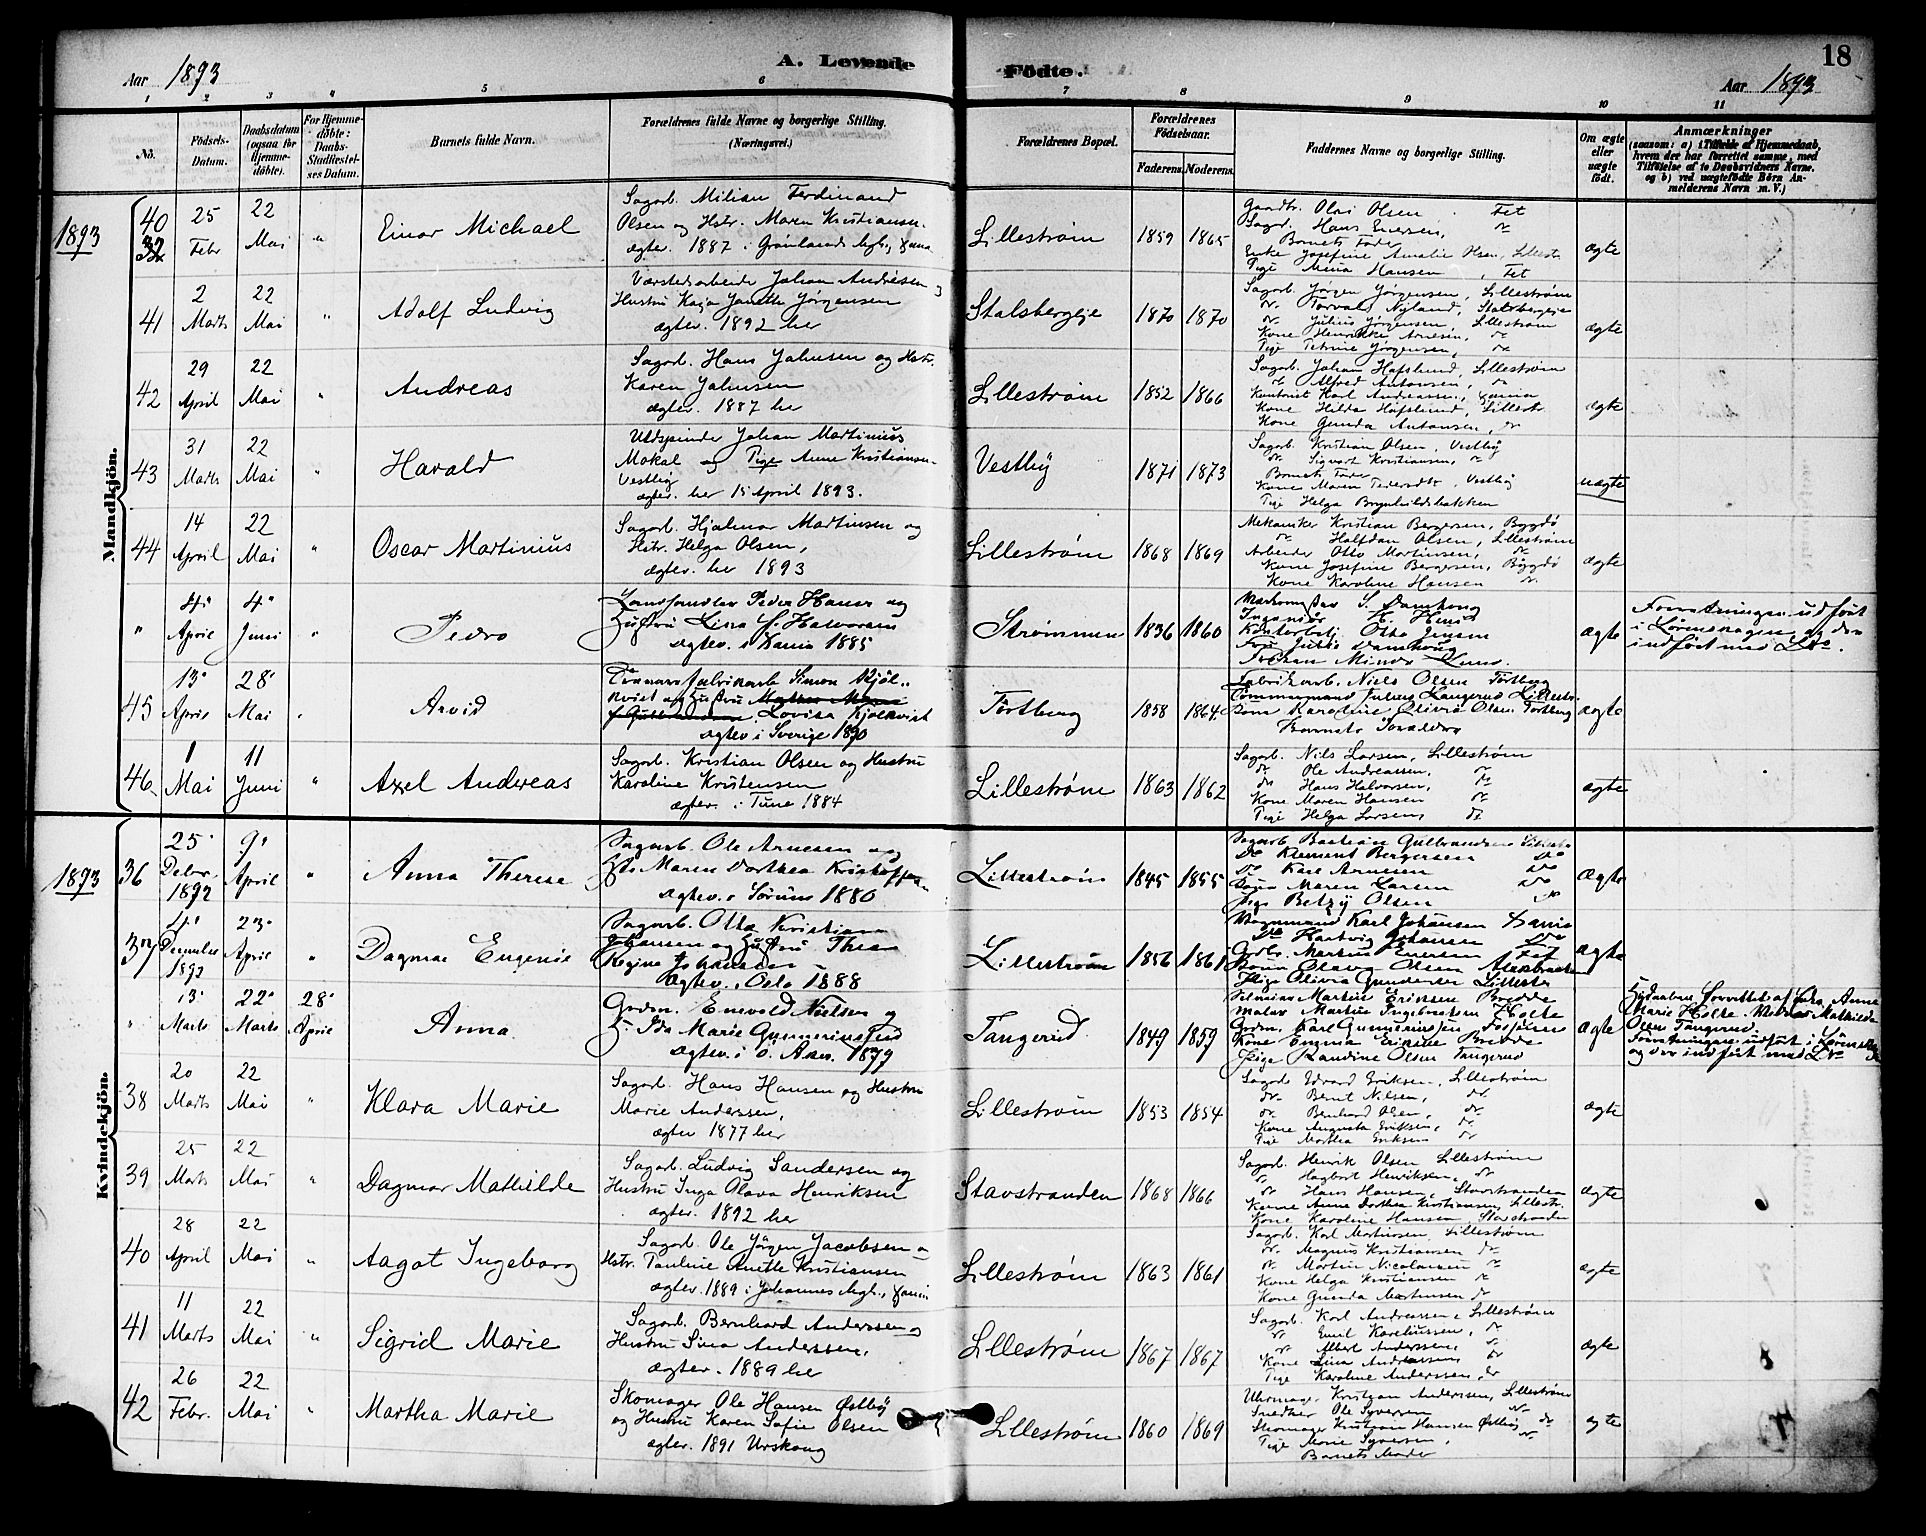 18
Aar 1893
A. Levende
Födte.
Aar 1893
1 2 3 4 5 6 7 8 9 10 11
No.
Födsels-
Datum.
Daabsdatum
(ogsaa for
Hjemme-
döbte).
For Hjemme-
döbte:
Daabs-
Stadfæstel-
ses Datum.
Barnets fulde Navn.
Forældrenes fulde Navne og borgerlige Stilling.
(Næringsvei.)
Forældrenes Bopæl.
Forældrenes
Födselsaar.
Faderens. Moderens.
Faddernes Navne og borgerlige Stilling.
Om ægte
eller
uægte
födt.
Anmærkninger
(saasom: a) i Tilfælde af Hjemmedaab,
hvem der har forrettet samme, med
Tilföielse af to Daabsvidners Navne,
og b) ved uægtefödte Börn An-
melderens Navn m. V.)
Mandkjön.
1893
40
25 Febr
22 Mai
"
Einar Michael
Sagarb. Milian Ferdinand
Olsen og Hstr. Maren Kristiansen
ægtev. 1887 i Grønlands Mgh.,
Lillestrøm
1859 1865
Gaardbr. Olai Olsen Fet
Sagarb. Hans Enersen, do
Barnets Fader
Enke Josefine Amalie Olsen, Lillestr.
Pige Mina Hansen, Fet
ægte
41
2 Marts
22 Mai
"
Adolf Ludvig
Værkstedsarbeide Johan Andresen og
Hustru Kaja Janette Jørgensen
ægtev. 1892 her
Stalsbergeje
1870 1870
Sagarb. Jørgen Jørgensen, Lillestrøm
do. Torvald Nyland, Stalsbergeje
do. Julius Jørgensen, Lillestrøm
Kone Henrikke Arnesen, do
Pige Petrine Jørgensen, do
ægte
42
29 April
22 Mai
"
Andreas
Sagarb. Hans Johnsen og Hstr.
Karen Johnsen
ægtev. 1887 her
Lillestrøm
1852 1866
Sagarb. Johan Hafslund, Lillestrøm
do Alfred Antonsen, do
Karl Andreassen,
Kone Hilda Hafslund, Lillest.
Kone Gunda Antonsen, do
ægte
43
31 Marts
22 Mai
"
Harald
Udspinder Johan Martinius
Mokal og Pige Anne Kristiansen
Vestby
ægtev. her 15 April 1893.
Vestby
1871 1873
Sagarb. Kristian Olsen, Vestby
do. Sigvart Kristiansen, do
Barnets Fader
Kone Maren, Vestby
Pige Helga Brynhildsbakken
uægte
44
14 April
22 Mai
"
Oscar Martinius
Sagarb. Hjalmar Martinsen og
Hstr. Helga Olsen,
ægtev. her 1893
Lillestrøm
1868 1869
Mekaniker Kristian Bergersen, Bygdø
do Halfdan Olsen, Lillestrøm
Arbeider Otto Martinsen, do
Kone Josefine Bergersen, Bygdø
Kone Karoline Hansen do.
ægte
"
4. April
4. Juni
"
Pedro
Landhandler Peder Hansen og
Hustru Lina f. Halvorsen
ægtev. i Xania 1885
Strømmen
1836 1860
S. Damhoug
Ingeniør H.
Kontorbetj. Otto Jensen
Fru Julie Damhoug
Frøken Minda Lund.
ægte
Forretningen udført
i Lørenskogen og der
indført med L. No.
45
13. April
28. Mai
"
Arvid
Simon Kjöl-
kvist og Hustru
Lovisa Kjölkvist
ægtev. i Sverige 1890
Tortberg
1858 1864.
Fabrikarb. Niels Olsen Tortberg
Tømmermand Julius Langerud Lillestr.
Kone Karoline Olivia Olsen Tortberg
Barnets Forældre
ægte
46
1 Mai
11 Juni
"
Axel Andreas
Sagarb. Kristian Olsen og Hustru
Karoline Kristensen
ægtev. i Tune 1884
Lillestrøm
1863 1862
Sagarb. Nils Larsen, Lillestrøm
do Ole Andreassen, do
do Hans Halvorsen, do
Kone Maren Hansen do
Pige Helga Larsen, do
ægte
Kvindekjön.
1893
36
25. Debr. 1892
9. April
"
Anna Therese
Sagarb. Ole Arnesen og
Hst. Maren Dorthea
ægtev. i Sørum 1880
Lillestrøm
1845 1855
Sagarb. Bastian Gulbrandsen Lillestr.
Do Klement Bergersen Do
Do Karl Arnesen Do
Kone Maren Larsen Do
Pige Betzy Olsen Do
ægte
37
4. December 1892
23. April
"
Dagmar Eugenie
Sagarb. Otto Kristian
Johansen og Hustru Thea
Regine Johansen
Ægtev. i Oslo 1888
Lillestrøm
1856 1861
Karl Johansen Xania
Do Hartvig Johansen Do
Grdbr. Martin Evensen Fet
Kone Olava Olsen
Pige Olivia Gundersen Lillestr.
ægte
"
13. Marts
22. Marts
28. April
Anna.
Grdm. Enevold Nielsen og
H. Ida Marie
ægtev. i Ö. Aker 1879
Tangerud
1849 1859
Martin Eriksen Bredde
Maler Martin Ingebretsen Holte
Grdm. Karl
Kone Emma Eriksen Bredde
Pige Randine Olsen Tangerud
ægte
Hjdaaben forrettet af Anna
Marie Holte. Mathilde
Olsen Tangerud.
Forretningen udført i Lørenskog
og der indført med L. No
38
20 Marts
22 Mai
"
Klara Marie
Sagarb. Hans Hansen og Hustru
Marie Anderssen,
ægtev 1877 her
Lillestrøm
1853 1854
Sagarb. Edvard Eriksen, Lillestrøm
do. Bernt Nilsen, do.
do. Bernhard Olsen, do.
Kone Augusta Eriksen, do
Pige Martha Eriksen do
ægte
39
25 Marts
22 Mai
"
Dagmar Mathilde
Sagarb. Ludvig Sandersen og
Hustru Inga Olava Henriksen
ægtev. 1892 her
Stavstranden
1868 1866
Sagarb. Henrik Olsen Lillestrøm
do Hagbart Henriksen, do
do Hans Hansen, Stavstranden
Kone Anne Dorthea Kristiansen, Lillestr.
Kone Karoline Hansen, Stavstranden
ægte
40
28 April
22 Mai
"
Aagot Ingeborg
Sagarb. Ole Jörgen Jacobsen og
Hstr. Pauline Anette Kristiansen
ægtev. 1889 i Johannes Mgh.,
Lillestrøm
1863 1861
Sagarb. Karl Martinsen, Lillestrøm
do. Magnus Kristiansen do
do. Martin Nicolaisen do
Kone Helga Kristiansen do
Kone Gunda Martinsen do
ægte
41
11 Marts
22 Mai
"
Sigrid Marie
Sagarb. Bernhard Anderssen og
Hustru Lina Anderssen,
ægtev. 1889 her
Lillestrøm
1867 1867
Sagarb. Karl Andreassen, Lillestrøm
do Emil Kareliussen, do
do Albert Anderssen, do
Kone Lina Andreassen do
Pige Karoline Anderssen, do
ægte
42
26 Febr.
22 Mai
"
Martha Marie
Skomager Ole Hansen Østby
og Hustru Karen Sofie Olsen
ægtev. 1891 Urskoug
Lillestrøm
1860 1869
Uhrmager Kristian Anderssen, Lillestrøm
Snedker Ole Syversen do
Skomager Kristian Hansen Østby, do
Pige Marie Syversen, do
Barnets Moder
ægte